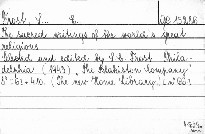 Frost, S... E.
The sacred writings of the world's great
religions
Selected and edited by S. E. Frost Phila-
delphia (1943), The Blakiston Company
8° (The New Home Library)